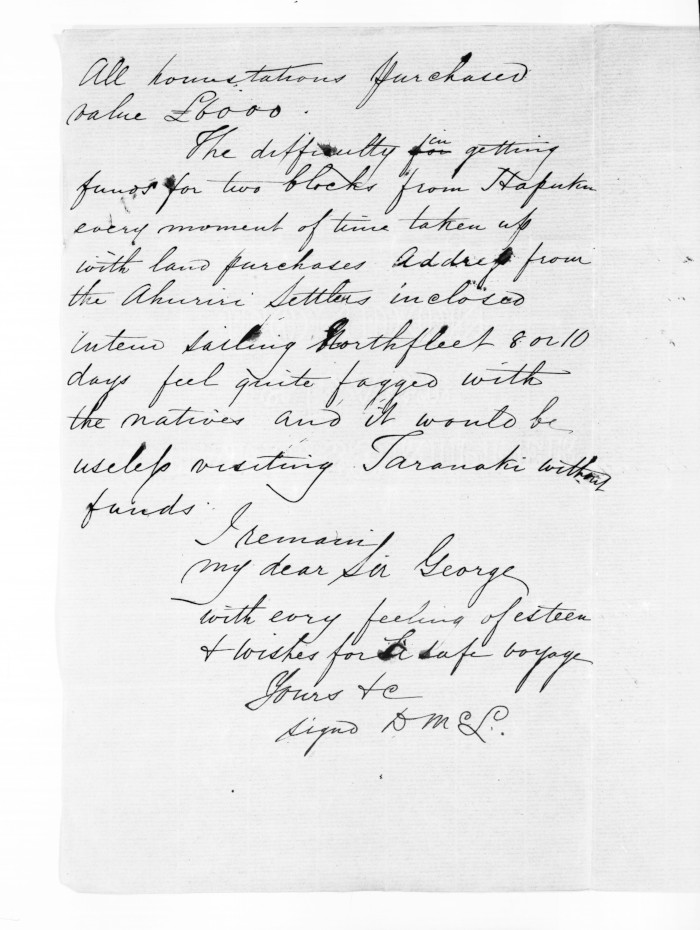 All homestations Purchased
value £6000.
The difficulty for in getting
funds for two blocks from Hapuku
every moment of time taken up
with land purchases Address from
the Ahuriri Settlers inclosed
intend sailing Northfleet 8 or 10
days feel quite fagged with
the natives and it would be
useless visiting Taranaki without
funds
I remain
my dear Sir George
with every feeling of esteem
& wishes for a safe voyage
Yours &c
signd D McL.